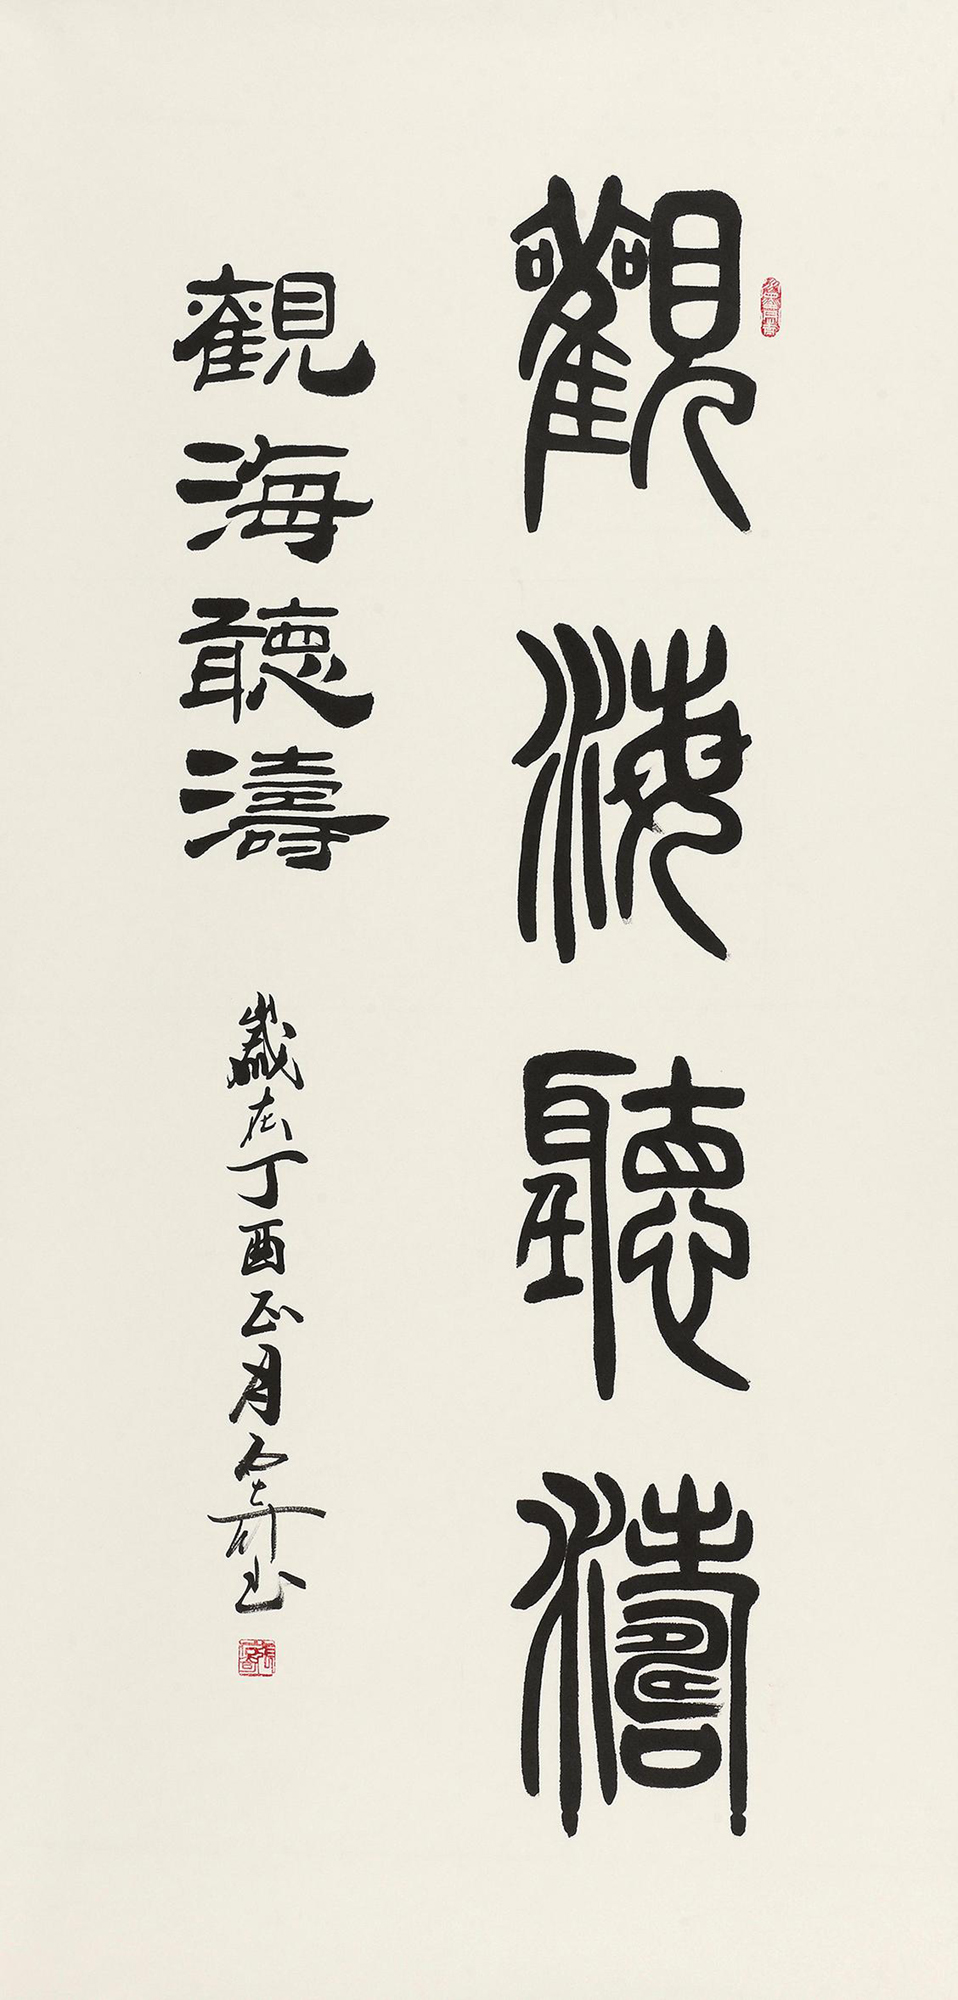 觀海聽濤
觀海聽濤 歲在丁酉正月